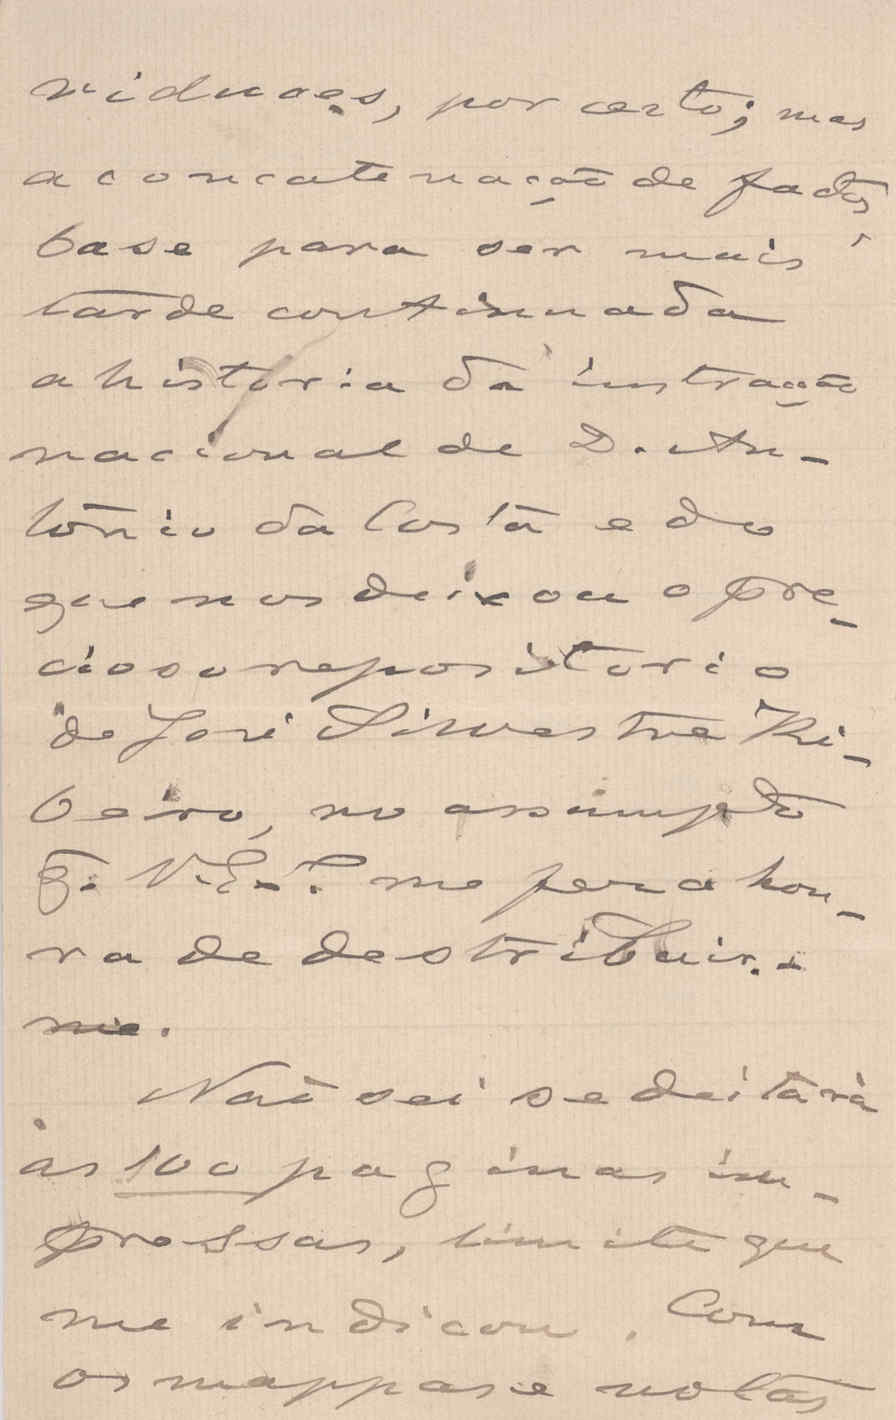 viduaes, por certo; mas
a concatenação de factos,
base para ser mais
tarde continuada
a historia da instrucção
nacional de D. An-
tónio da Costa e do
que nos deixou o pre-
cioso repositorio
de José Silvestre Ri-
beiro, no assumpto
q. V. E.. me fez a hon-
ra de destribuir-
me.
Não sei se deitará
ás 100 paginas im-
pressas, limite que
me indicou. Com
os mappas e notas